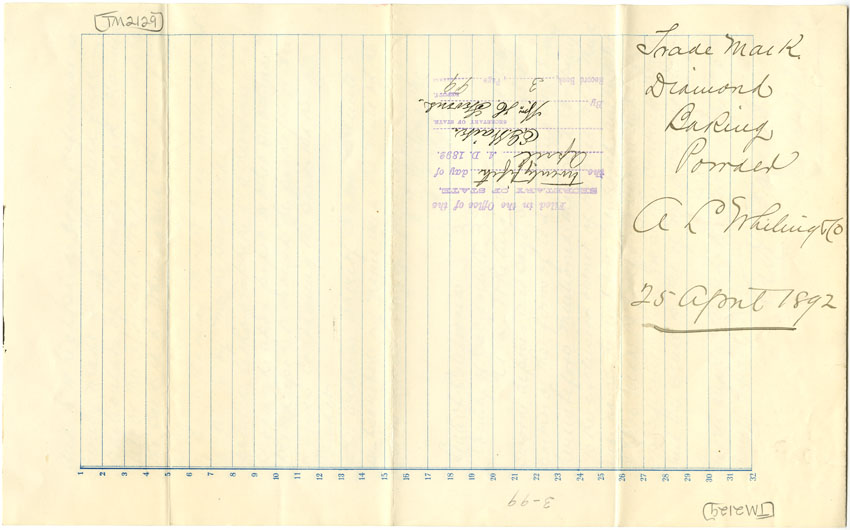 TM2129
Trade Mark
Diamond
Baking
Powder
A L Whiting & Co
25 April 1892
Filed in the Office of the
SECRETARY OF STATE
the Twenty fifth day of
April A. D. 1892.
SECRETARY OF STATE
By
DEPUTY.
Record Book, 3, Page, 99
1 2 3 4 5 6 7 8 9 10 11 12 13 14 15 16 17 18 19 20 21 22 23 24 25 26 27 28 29 30 31 32
3-99
TM2129